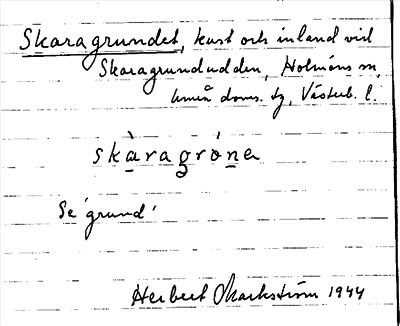 Skaragrundet, kust och inland vid
Skaragrundudden, Holmöns sn,
Umeå doms. tg, Västerb. l.
skàragrón̲a
Se 'grund'
Herbert Markström 1944